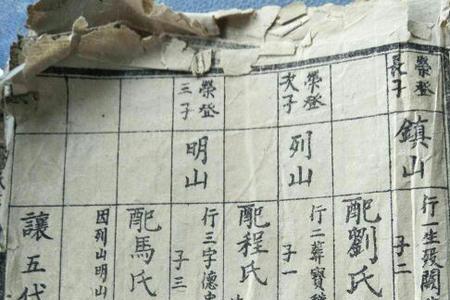 榮登
長子
鎮山
行一生歿闕
子二
配劉氏
榮登
次子
列山
行二葬寶
子一
配程氏
榮登
三子
明山
行三字德
子三
配馬氏
因列山明山
讓五代